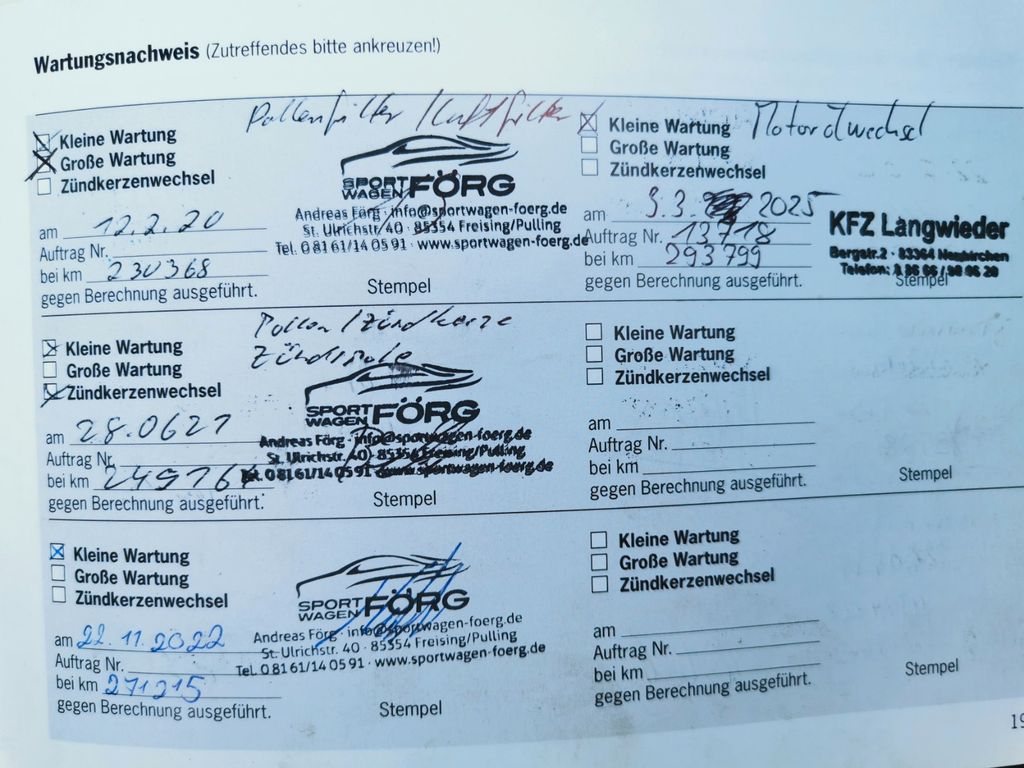 Wartungsnachweis (Zutreffendes bitte ankreuzen!)
Pollenfilter / Luftfilter
Kleine Wartung
Große Wartung
Zündkerzenwechsel
am 12.2.20
Auftrag Nr.
bei km 230368
gegen Berechnung ausgeführt.
SPORT WAGEN FÖRG
Andreas Förg · info@sportwagen-foerg.de
St. Ulrichstr. 40 · 85354 Freising/Pulling
Tel. 0 81 61/14 05 91 · www.sportwagen-foerg.de
Stempel
Kleine Wartung Motorölwechsel
Große Wartung
Zündkerzenwechsel
am 3.3. 2025
Auftrag Nr. 13718
bei km 293799
gegen Berechnung ausgeführt.
KFZ Langwieder
Bergstr.2 · 83364 Neukirchen
Telefon:
Stempel
Pollen / Zündkerze
Zündspule
Kleine Wartung
Große Wartung
Zündkerzenwechsel
am 28.0621
Auftrag Nr.
bei km
gegen Berechnung ausgeführt.
SPORT WAGEN FÖRG
Andreas Förg · info@sportwagen-foerg.de
St. Ulrichstr. 40 · 85354 Freising/Pulling
Tel. 0 81 61/14 05 91 · www.sportwagen-foerg.de
Stempel
Kleine Wartung
Große Wartung
Zündkerzenwechsel
am
Auftrag Nr.
bei km
gegen Berechnung ausgeführt.
Stempel
Kleine Wartung
Große Wartung
Zündkerzenwechsel
am 22.11.2022
Auftrag Nr.
bei km 271215
gegen Berechnung ausgeführt.
SPORT WAGEN FÖRG
Andreas Förg · info@sportwagen-foerg.de
St. Ulrichstr. 40 · 85354 Freising/Pulling
Tel. 0 81 61/14 05 91 · www.sportwagen-foerg.de
Stempel
Kleine Wartung
Große Wartung
Zündkerzenwechsel
am
Auftrag Nr.
bei km
gegen Berechnung ausgeführt.
Stempel
19